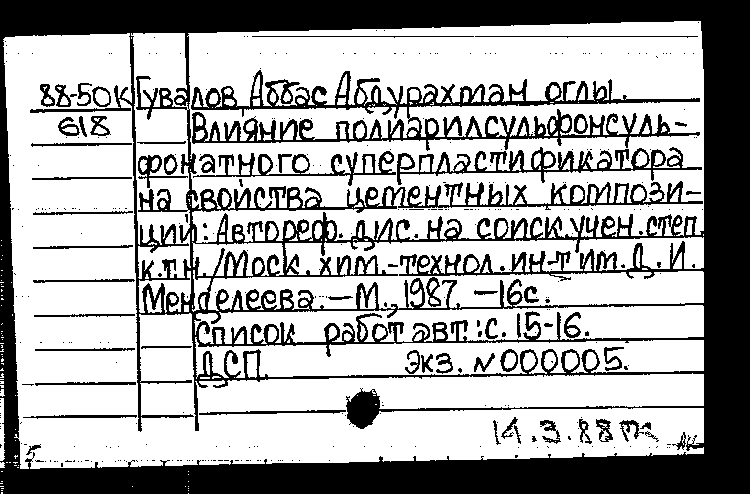 88-50К Гувалов, Аббас Абдурахман оглы.
618 Влияние полиарилсульфонсуль-
фонатного суперпластификатора
на свойства цементных компози-
ций: Автореф. дис. на соиск. учен. степ.
к.т.н. /Моск. хим.-технол. ин-т им. Д. И.
Менделеева. — М., 1987. — 16с.
Список работ авт.: с. 15-16.
ДСП. Экз. N 000005.
14.3.88
5